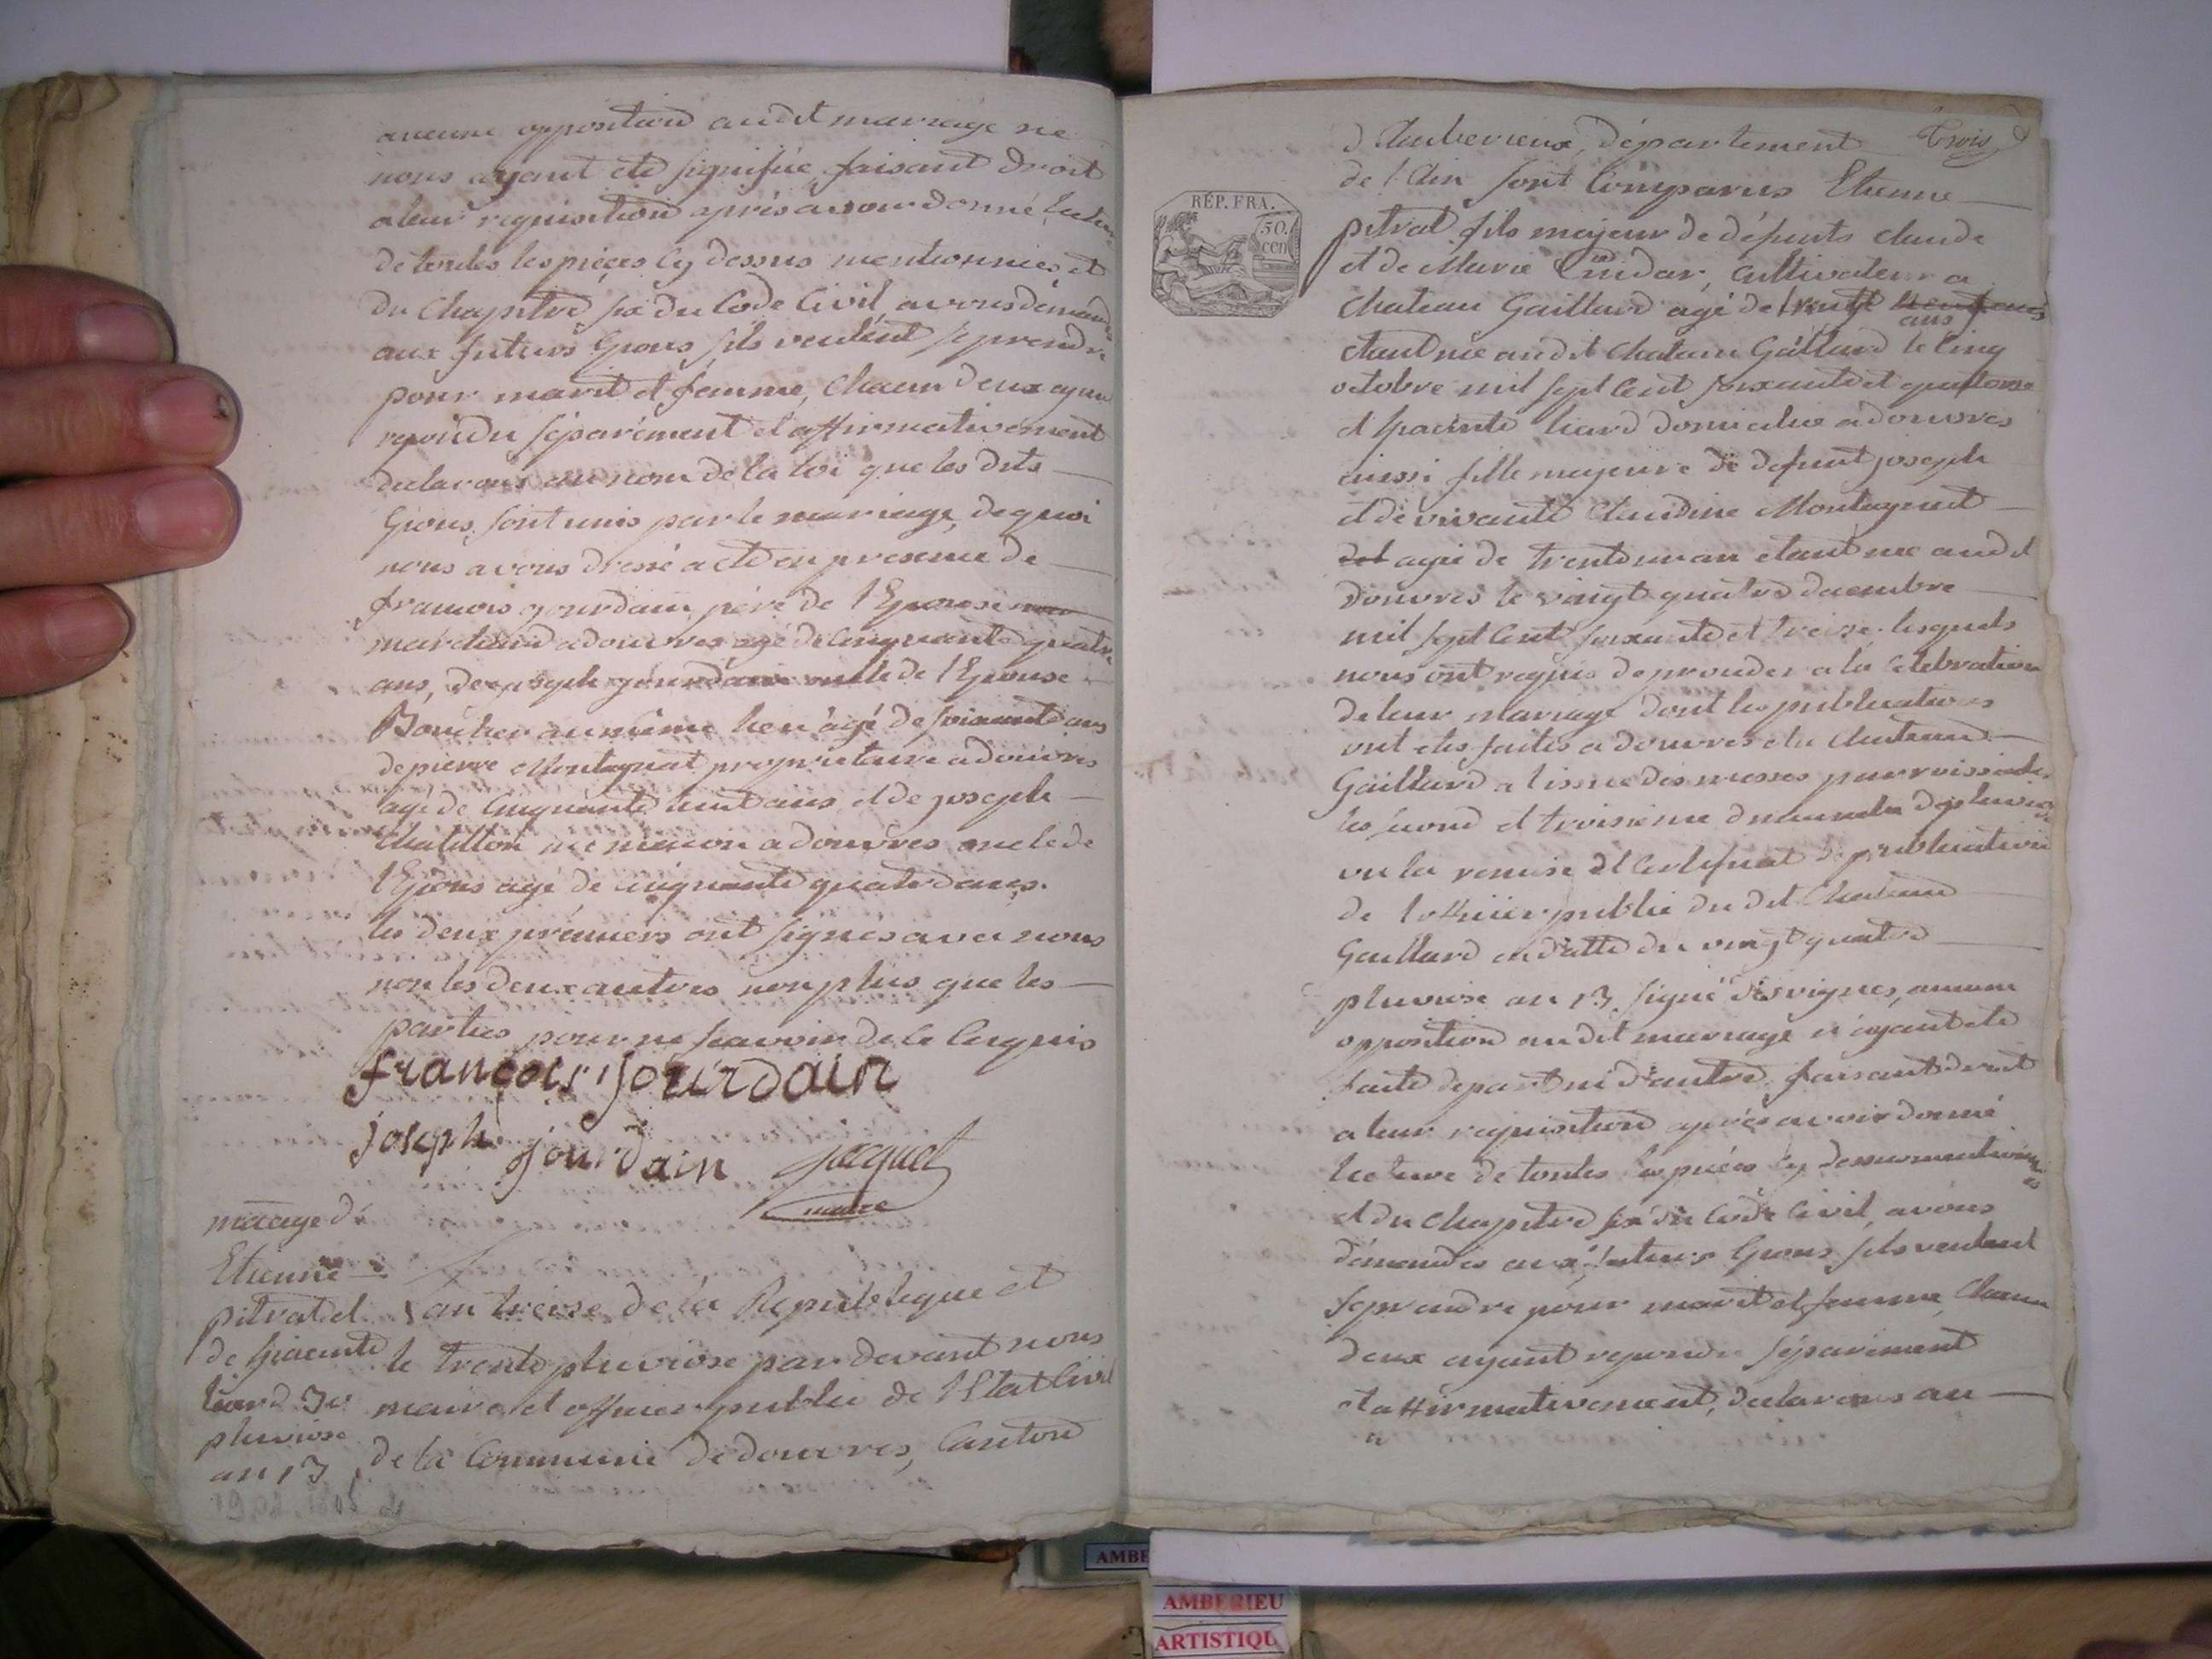 aucune opposition audit mariage ne
nous ayant été signifiée, faisant droit
a leur requisition après avoir donné lecture
de toutes les pièces cy dessus mentionnées et
du Chapitre six du Code Civil, avons demandé
aux futurs Epous s'ils veulent se prendre
pour marit et femme, Chacun deux ayant
repondu séparément et affirmativement
declarons au nom de la loi que les dits
Epous sont unis par le mariage, de quoi
nous avons dressé acte en presence de
francois jourdain, père de l'Epouse
marchand a douvres agé de cinquante quatre
ans, de joseph jourdain oncle de l'Epouse
Boucher au même lieu agé de soixante ans
de pierre Montagnat propriétaire a douvres
agé de cinquante huit ans, et de joseph
Chatillon maçon a douvres oncle de
l'Epous agé de cinquante quatre ans.
les deux premiers ont signés avec nous
non les deux autres non plus que les
parties pour ne scavoir de ce enquis
françois jourdain
joseph jourdain jacquet
maire
mariage de
Etienne
pitrat et
de hiacinte
liard 30
pluviose
an 13
19.02.1805
L'an treise de la Republique et
le trente pluviose par devant nous
maire et officier public de l'Etat Civil
de la Commune de douvres, Canton
trois
d'Amberieux, département
de l'Ain sont Comparus Etienne
RÉP. FRA.
50.
cen
pitrat fils majeur de défunts claude
et de Marie, cultivateur a
Chateau Gaillard agé de trente ans
etant né audit Chateau Gaillard le cinq
octobre mil sept cent soixante et quatorse
et hiacinte liard domiciliée a douvres
aussi fille majeure de defunt joseph
et de vivante Claudine Montagnat
agée de trente un an etant née audit
douvres le vingt quatre decembre
mil sept cent soixante et treise, lesquels
nous ont requis de proceder a la celebration
de leur mariage dont les publications
ont etés faites a douvres et a Chateau
Gaillard a l'issue des messes parroissiales
les second et troisieme dimanche de pluviose
vu la remise et certificat de publication
de l'officier public du dit Chateau
Gaillard en datte du vingt quatre
pluviose an 13 signé desvignes, aucune
opposition audit mariage n'ayant eté
faite de part ni d'autre, faisant droit
a leur requisition après avoir donné
lecture de toutes les pièces cy dessus mentionnées
et du Chapitre six du Code Civil, avons
demandés aux futurs Epous s'ils veulent
se prendre pour marit et femme, Chacun
deux ayant repondu séparément
et affirmativement, declarons au
AMBE
AMBERIEU
ARTISTIQU